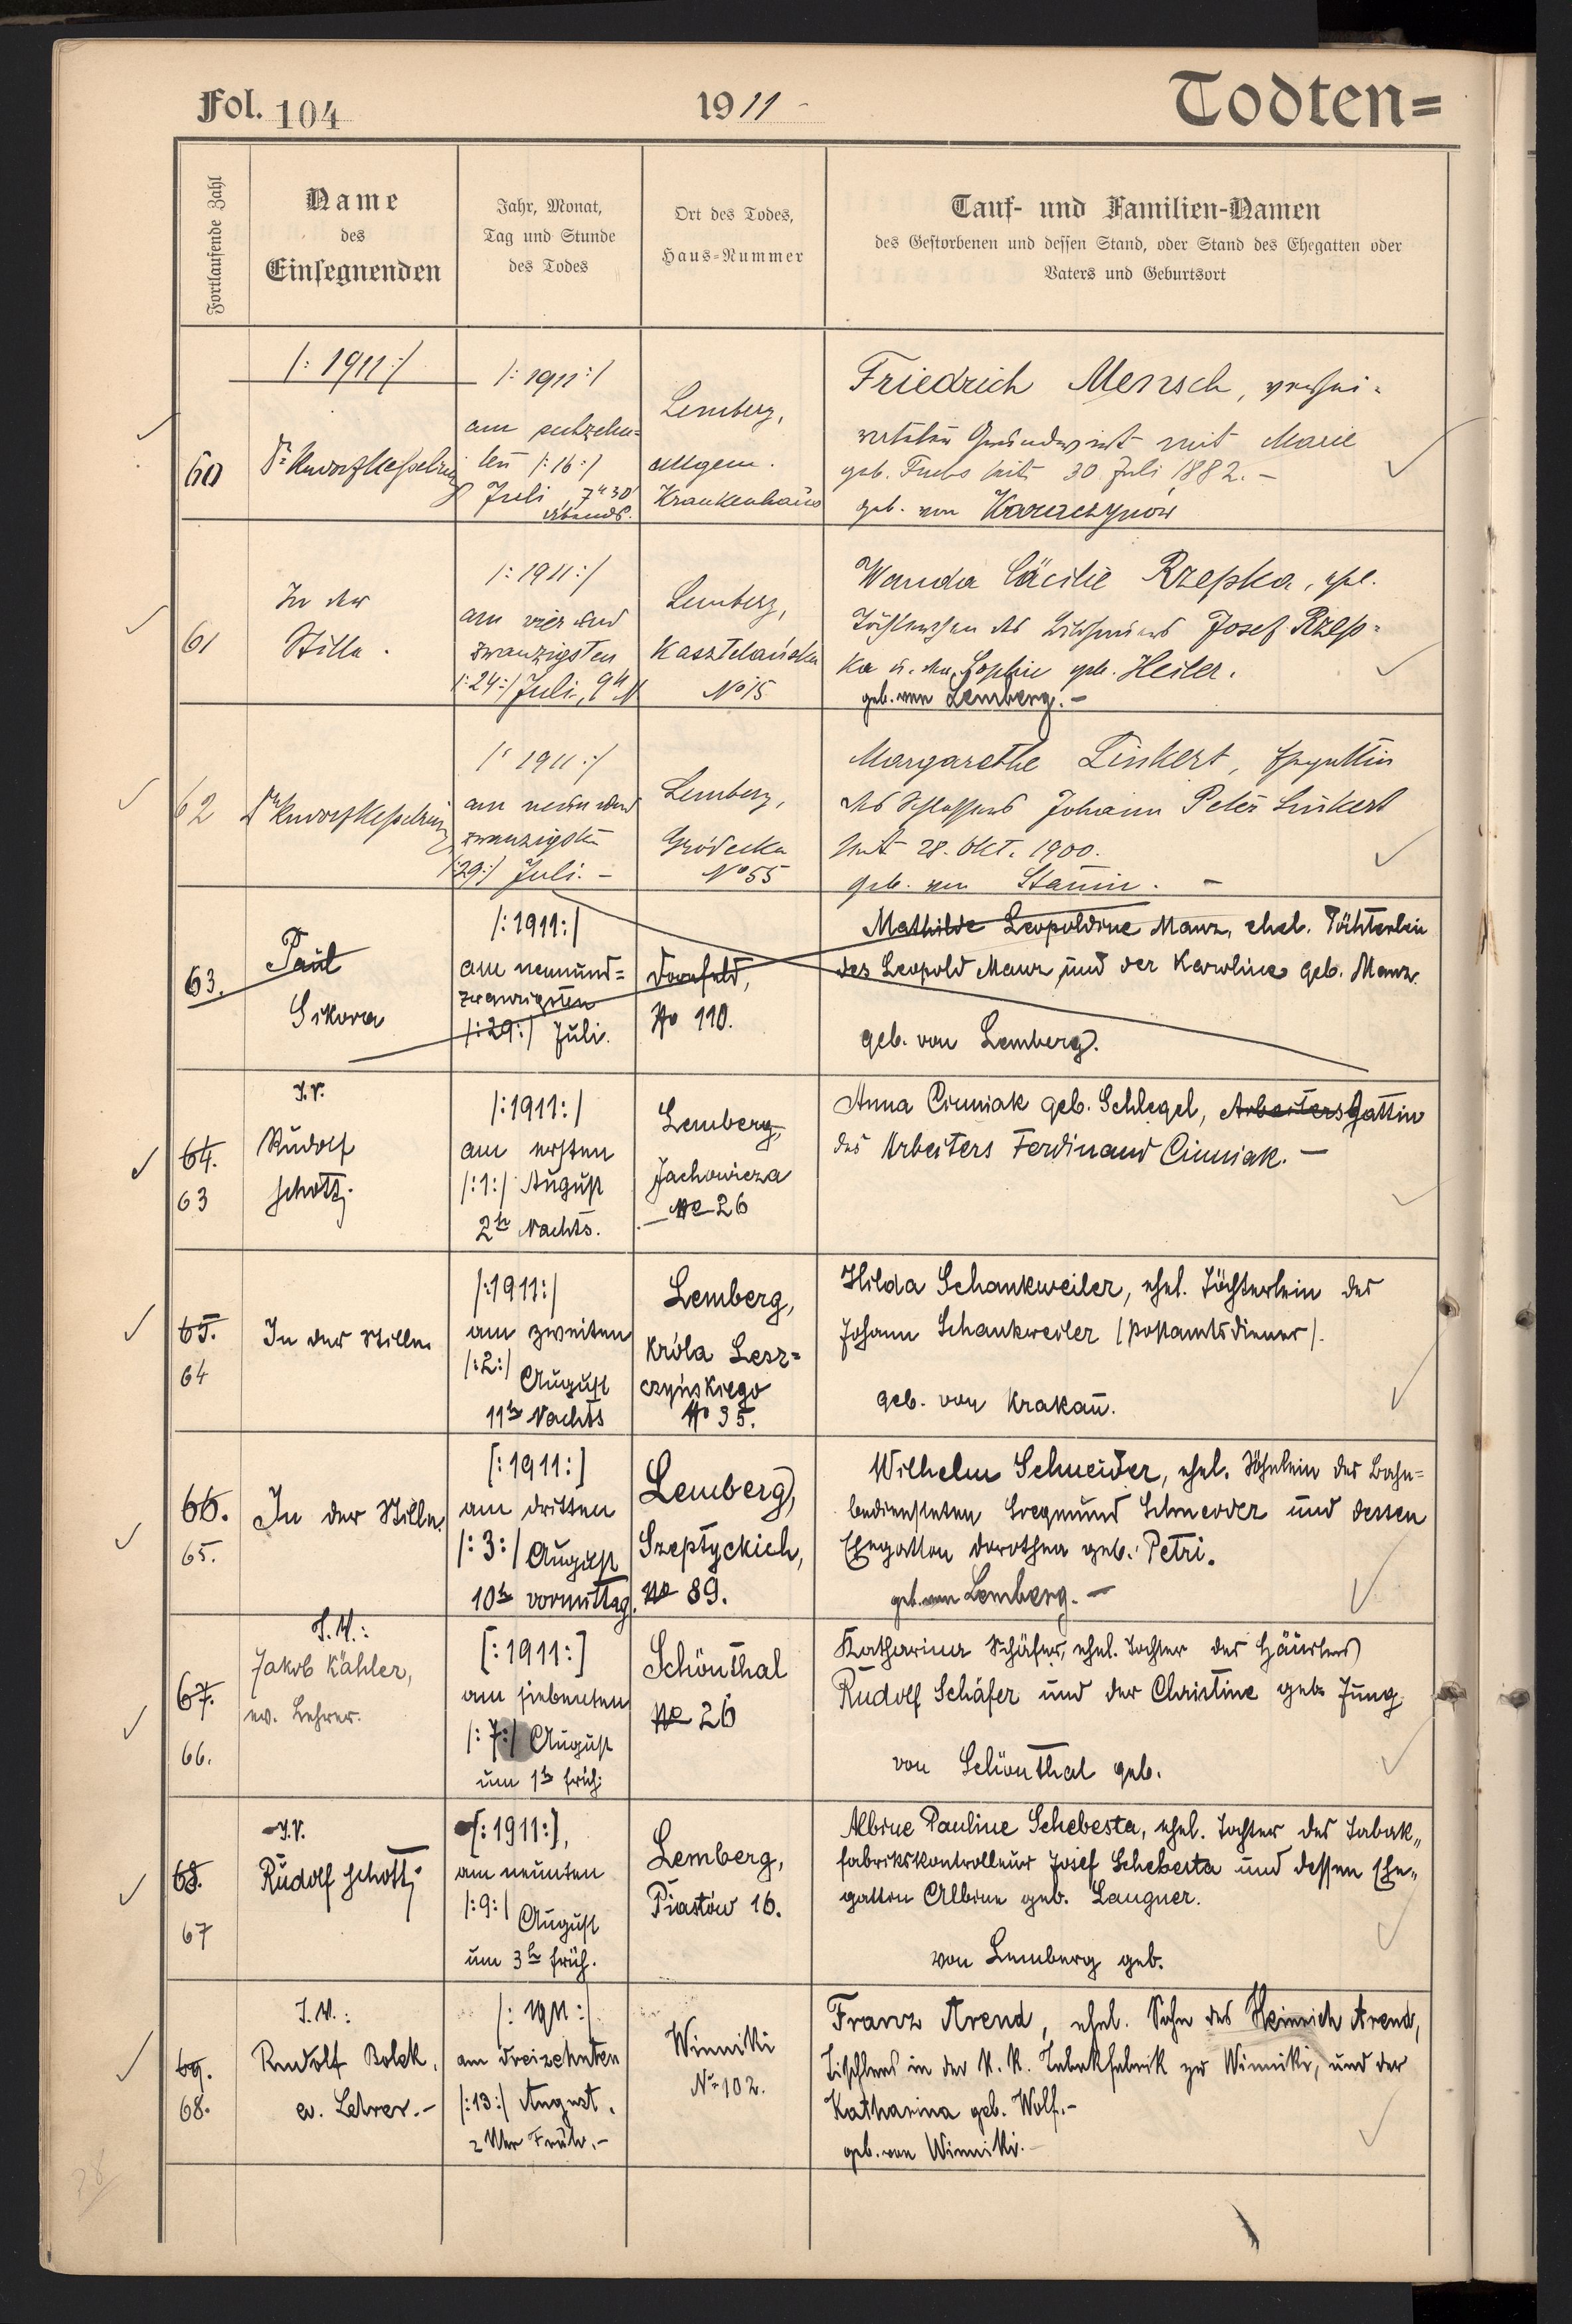 Fol. 104
1911 -
Todten=
Fortlaufende Zahl
Name
des
Einsegnenden
Jahr, Monat,
Tag und Stunde
des Todes
Ort des Todes,
Haus-Nummer
Tauf- und Familien-Namen
des Gestorbenen und dessen Stand, oder Stand des Ehegatten oder
Vaters und Geburtsort
/: 1911 :/
60
Dr
/: 1911 :/
am sechzehn=
ten /:16:/
Juli, 7h 30'
Abends.
Lemberg,
allgem.
Krankenhaus
Friedrich Mensch, verhei=
rateter Grundwirt mit Marie
geb. Fuchs seit 30 Juli 1882. -
geb. von
61
In der
Stille.
/: 1911 :/
am vier und
zwanzigsten
/:24:/ Juli, 9h
Lemberg,
Kasztelańska
No 15
Wanda Cäcilie Rzepka, ehel.
Töchterchen des Josef Rzep=
ka u. der Sophie geb. Heiler.
geb. von Lemberg. -
62
Dr
/: 1911 :/
am neun und
zwanzigsten
/:29:/ Juli. -
Lemberg,
Gródecka
No 55
Margarethe Linkert, Ehegattin
des Schlossers Johann Peter Linkert
seit 28. Okt. 1900.
geb. von Stanin. -
63.
Paul
Sikora
/: 1911 :/
am neunund=
zwanzigsten
/:29:/ Juli.
Dornfeld,
No 110.
Mathilde Leopoldine Manz, ehel. Töchterlein
des Leopold Manz und der Karoline geb. Manz.
geb. von Lemberg.
64.
63
I.V.
Rudolf
Schott
/: 1911 :/
am ersten
/:1:/ August
2h Nachts.
Lemberg,
Jachowicza
No 26
Anna Ciuniak geb. Schlegel, Arbeiters Gattin
des Arbeiters Ferdinand Ciuniak. -
65.
64
In der Stille.
/: 1911 :/
am zweiten
/:2:/ August
11h Nachts
Lemberg,
Króla Lesz=
czyńskiego
No 35.
Hilda Schankweiler, ehel. Töchterlein des
Johann Schankweiler /Postamtsdiener/.
geb. von Krakau.
66.
65.
In der Stille.
[: 1911 :]
am dritten
/:3:/ August
10h vormittag.
Lemberg,
Szeptyckich,
No 89.
Wilhelm Schneider, ehel. Söhnlein des Bahn=
bediensteten Siegmund Schneider und dessen
Ehegattin Dorothea geb. Petri.
geb. von Lemberg. -
67.
66.
I.V.:
Jakob Kähler,
ev. Lehrer.
[: 1911 :]
am siebenten
/:7:/ August
um 1h früh.
Schönthal
No 26
Katharina Schäfer, ehel. Tochter des Häuslers
Rudolf Schäfer und der Christine geb. Jung.
von Schönthal geb.
68.
67
I.V.
Rudolf Schott
[: 1911 :],
am neunten
/:9:/ August
um 3h früh.
Lemberg,
Piastów 16.
Albine Pauline Schebesta, ehel. Tochter des Tabak„
fabrikskontrolleurs Josef Schebesta und dessen Ehe„
gattin Albine geb. Laugner.
von Lemberg geb.
69.
68.
I.V.:
Rudolf Bolek,
ev. Lehrer. -
/: 1911 :/
am dreizehnten
/:13:/ August.
2 Uhr Früh. -
Winniki
No 102.
Franz Arend, ehel. Sohn des Heinrich Arend,
Tischlers in der k. k. Tabakfabrik zu Winniki, und der
Katharina geb. Wolf. -
geb. von Winniki. -